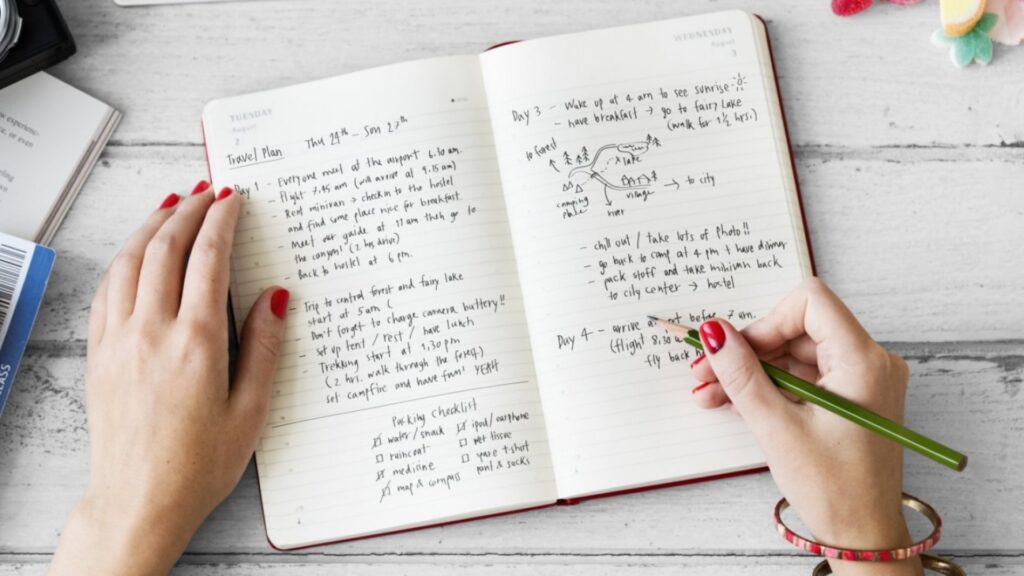 new experienc-
or even
CASS
TUESDAY
August
2
Thu 24th - Sun 27th
Travel Plan
Day 1 - Everyone meet at the airport 6.30 am.
- Flight 7.45 am (will arrive at 9.15 am)
- Rent minivan → checkin to the hostel
and find some place nice for breakfast
- Meet our guide at 11 am then go to
the canyon (2 hrs drive)
- Back to hostel at 6 pm.
- Trip to central forest and fairy lake
start at 5 am (
Don't forget to charge camera battery!!
- Set up tent / rest / have lunch
- Trekking start at 1.30 pm
(2 hrs. walk through the forest)
set campfire and have fun! YEAH
Packing checklist
water/snack
raincoat
medicine
map & compass
ipod/earphone
wet tissue
t-shirt
pant & socks
WEDNESDAY
August
3
Day 3 - Wake up at 4 am to see sunrise
- have breakfast → go to fairy lake
(walk for 1 ½ hrs.)
to forest
lake
village
→ to city
camping
place
river
- chill out / take lots of photo!!
- go back to camp at 4 pm & have dinner
- pack stuff and take minivan back
to city center → hostel
Day 4 - arrive before 7 am.
(flight 8.30
fly back